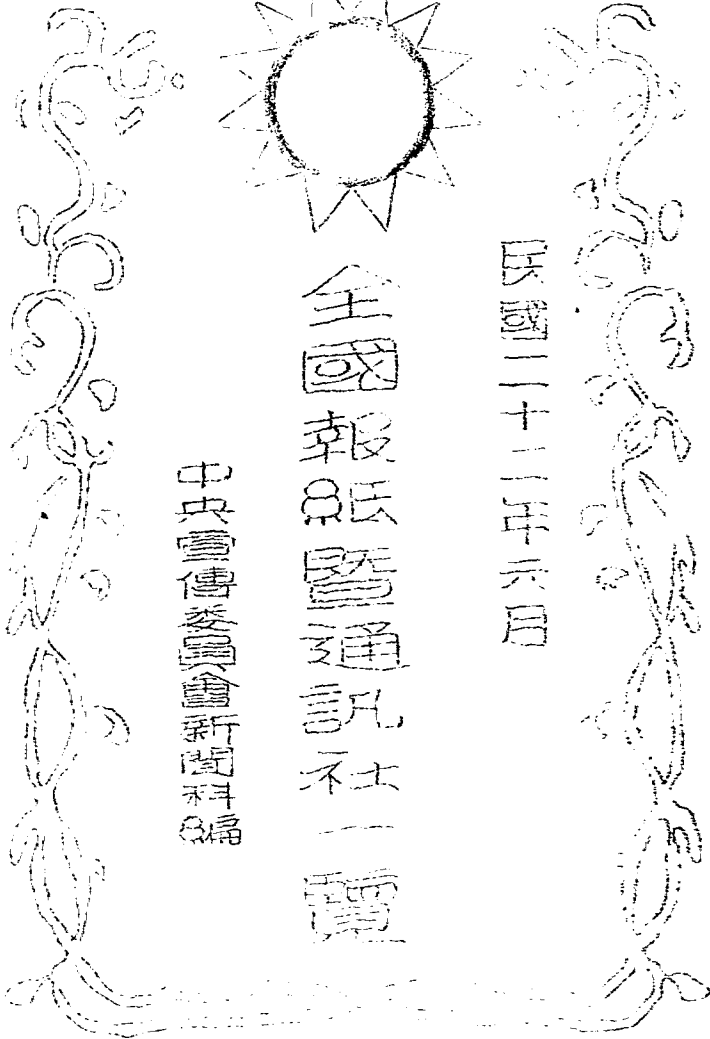 民國二十二年六月
全國報紙暨通訊社一覽
中央宣傳委員會新聞科編